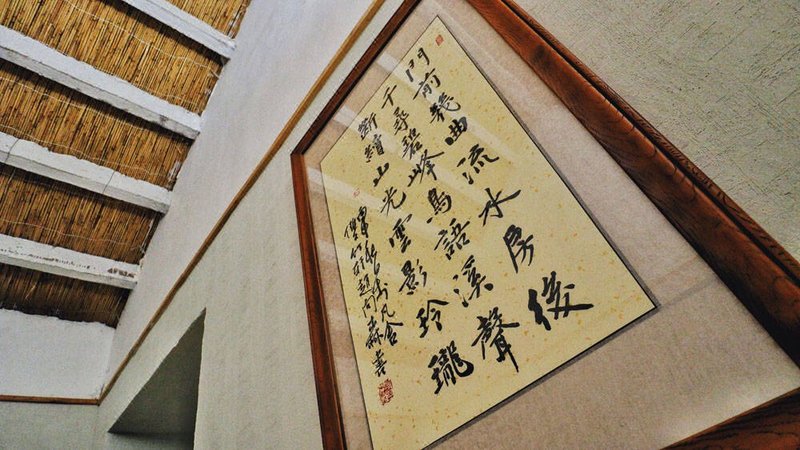 門前幾曲流水房後
千尋碧峰鳥語溪聲
斷續山光雲影玲瓏